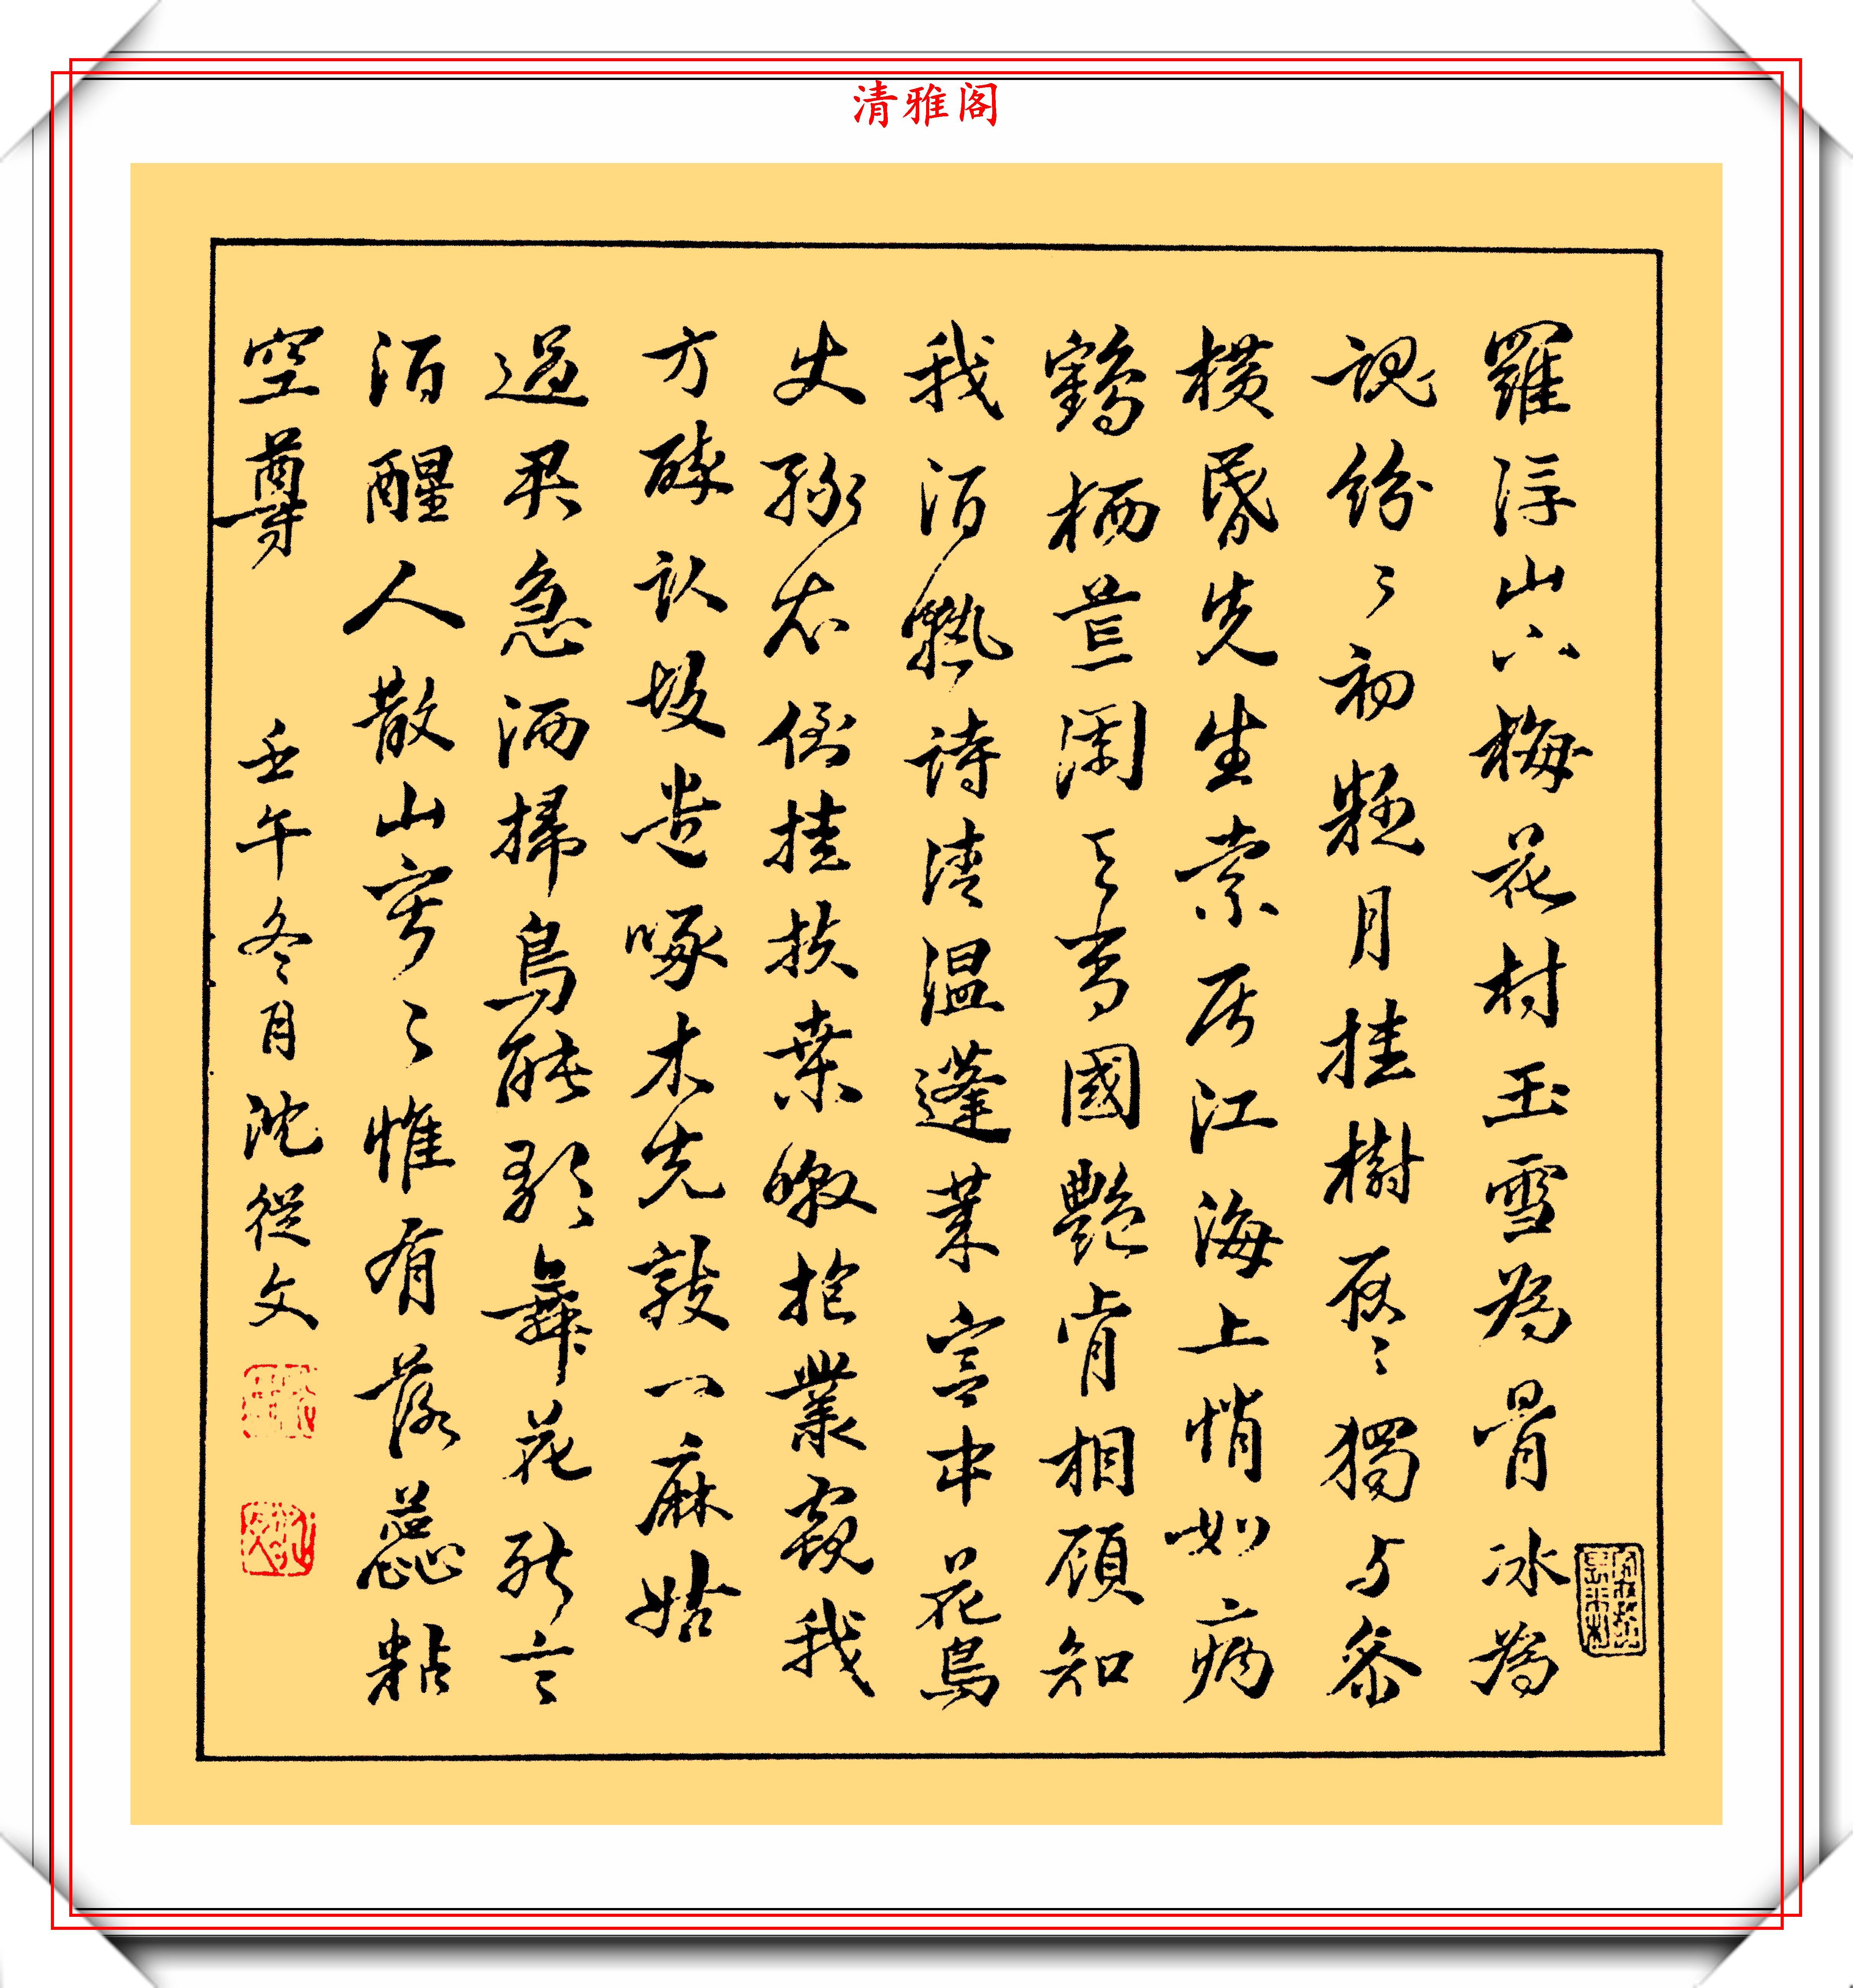 清雅阁
羅浮山下梅花村玉雪為骨冰為
魂紛々初疑月挂樹耿々獨与參
橫昏先生索居江海上悄如病
鶴栖荒園天香國艷肯相顧知
我酒熟詩清溫蓬萊宮中花鳥
使綠衣倒挂扶桒暾抱叢窺我
方醉臥故遣啄木先敲一麻姑
過君急洒掃鳥能歌舞花能言
酒醒人散山寂々惟有落蕊粘
空尊 壬午冬月沈從文